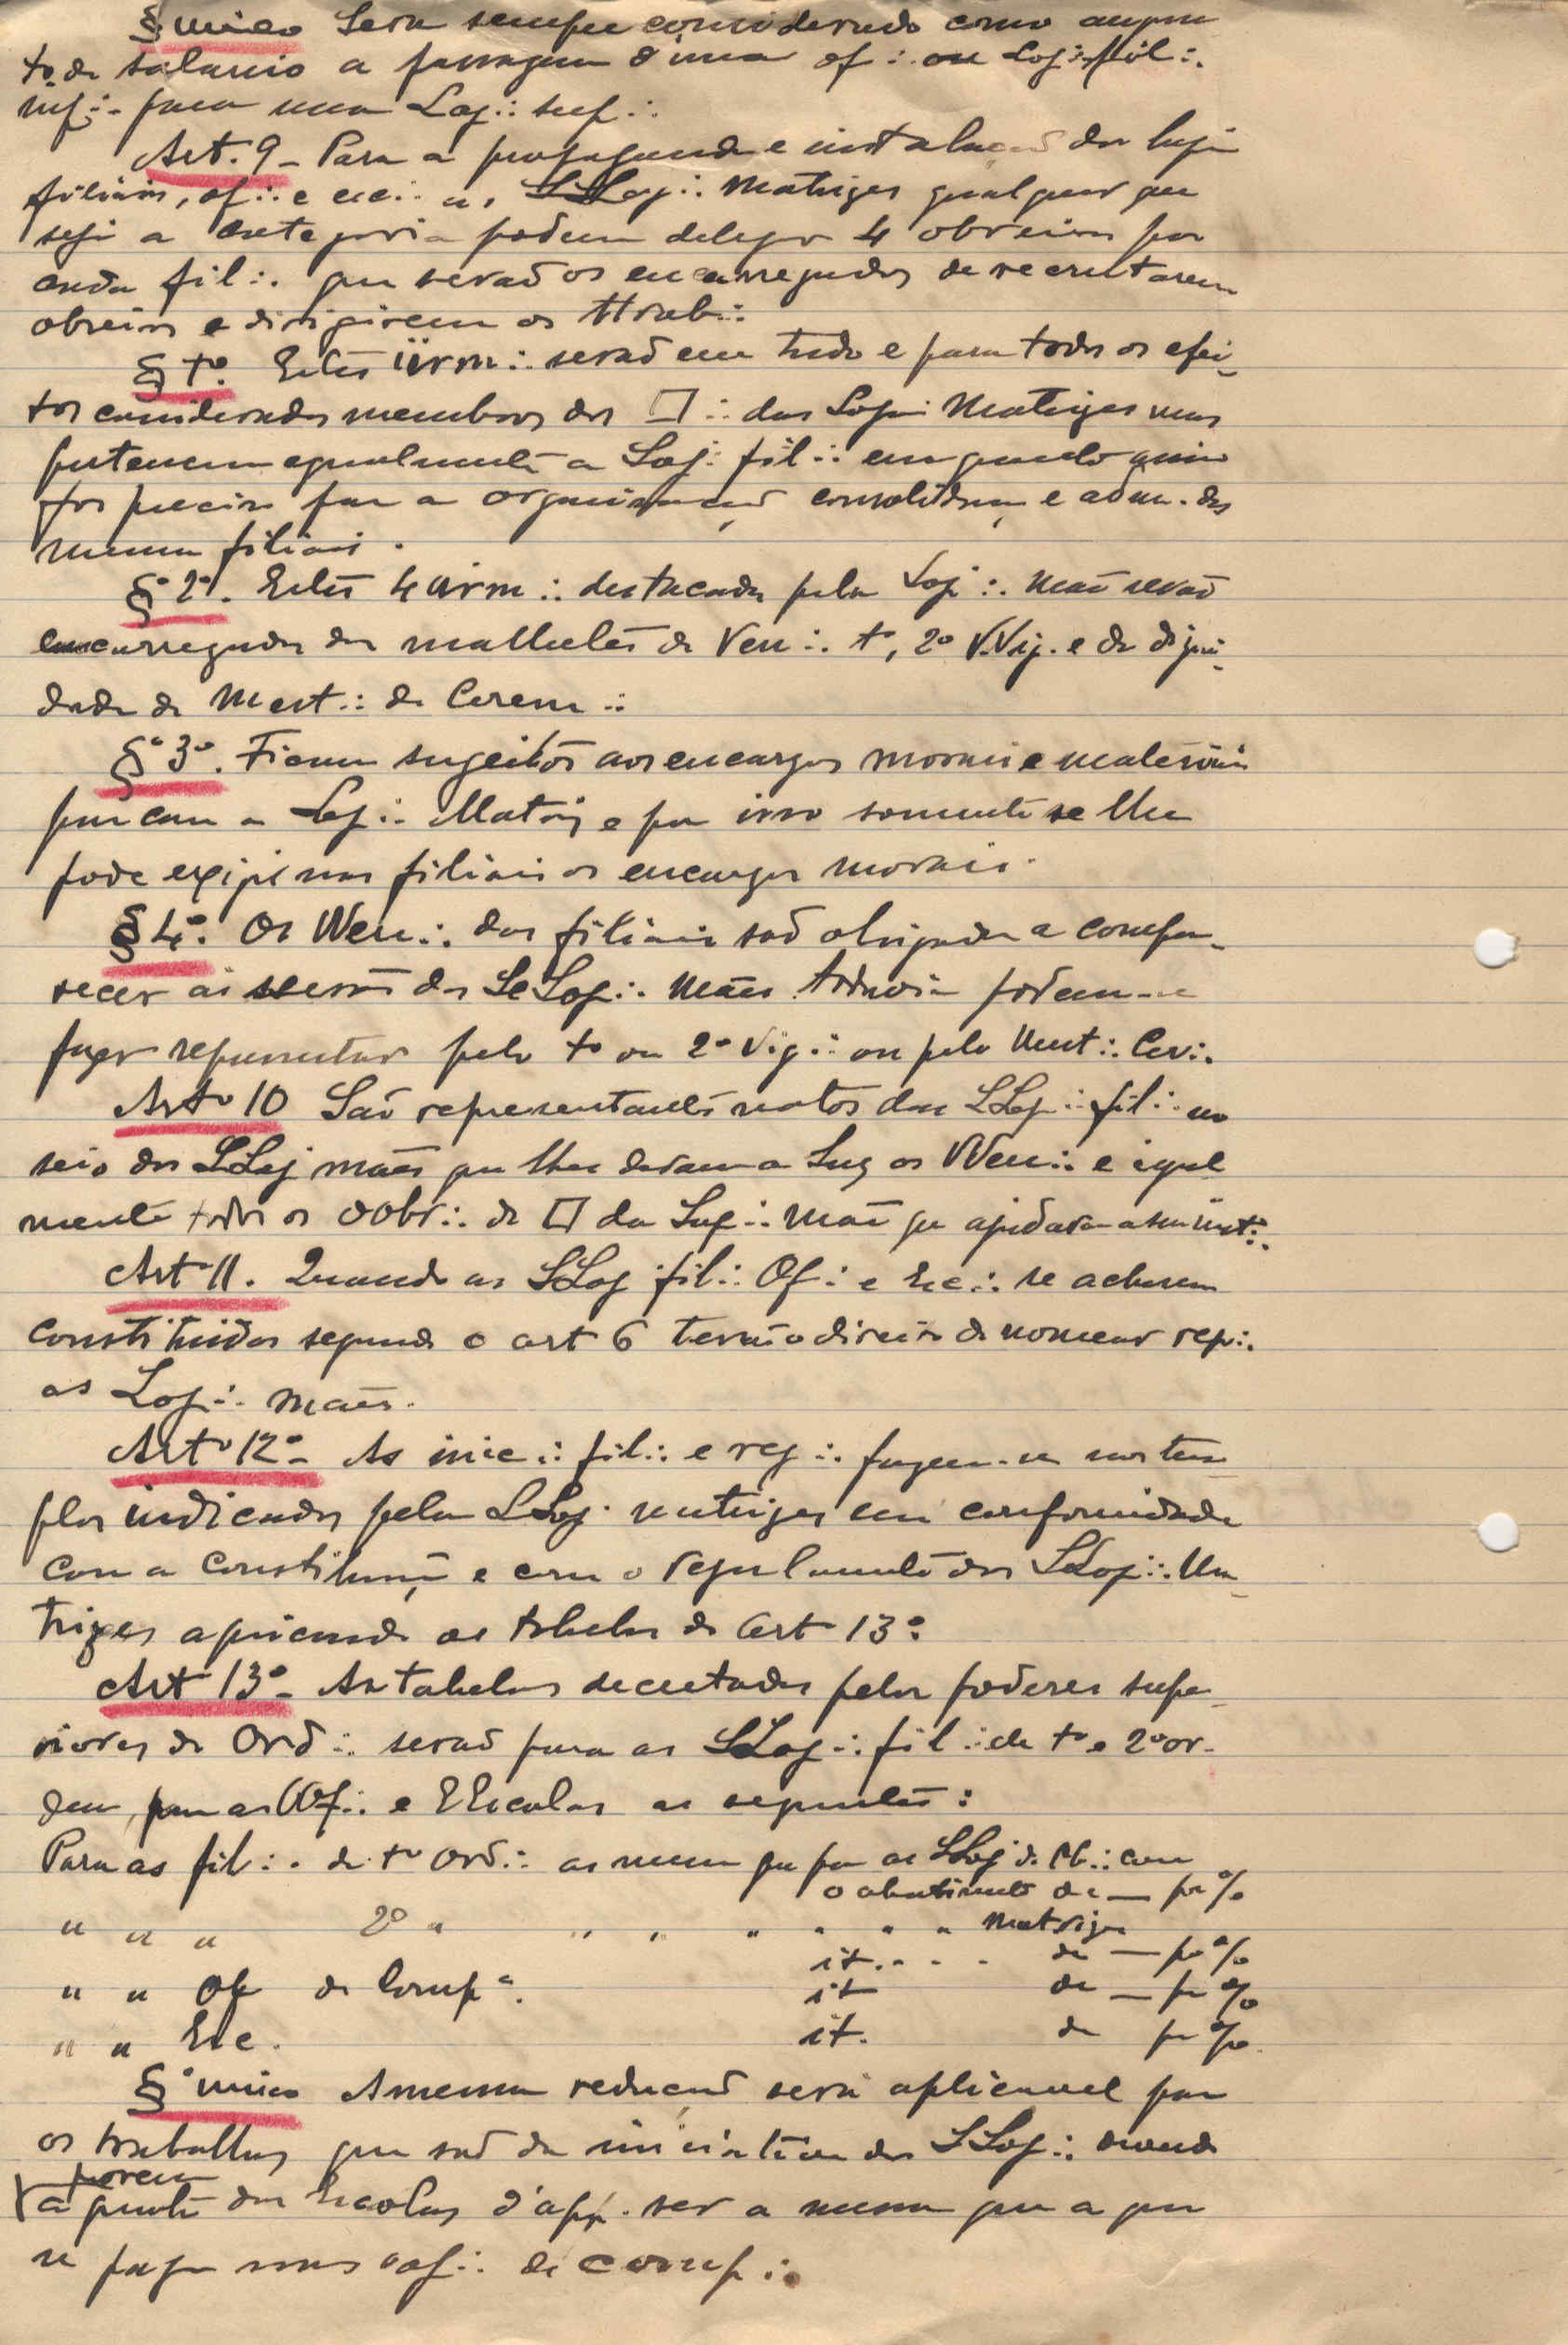 § unico Sera sempre considerado como augmen
to de salario a passagem d'uma of∴ ou Loj∴ fil∴
inf∴ para uma Loj∴ sup∴
Art. 9 - Para a propaganda e instalação das lojas
filiais, of∴ e esc∴ as LLoj∴ Matrizes qualquer que
seja a categoria podem delegar 4 obreiros por
cada fil∴ que serão os encarregados de recrutarem
obreiros e dirigirem os ttrab∴
§ 1º. Estes iirm∴ serão em tudo e para todos os efei-
tos considerados membros dos □∴ das Loj∴ Matrizes mas
pertencem egualmente a Loj∴ fil∴ em quanto
for preciso para a organisação consolidação e adm. das
mesmas filiais.
§ 2º. Estes 4 iirm∴ destacados pela Loj∴ mãe serão
encarregados dos malhetes de Ven∴ 1º, 2º VVig. e da digni-
dade de Mest∴ de Cerem∴
§ 3º. Ficam sugeitos aos encargos moraes e materiais
para com a Loj∴ Matriz e por isso somente se lhe
pode exigir nas filiais os encargos morais.
§ 4º. Os VVen∴ das filiais são obrigados a compa-
recer ás sessões das LLoj∴ Mães todavia podem-se
fazer representar pelo 1º ou 2º Vig∴ ou pelo Mest∴ Cer∴
Artº 10 São representantes natos das LLoj∴ fil∴ no
seio das LLoj mães que lhes deram a Luz os VVen∴ e igual
mente todos os oobr∴ do □ da Loj∴ mãe que ajudaram a sua inst∴
Art 11. Quando as LLoj fil∴ Of∴ e Esc∴ se acharem
constituidas segundo o art 6 terão o direito de nomear rep∴
as Loj∴ mães.
Artº 12º - As inic∴ fil∴ e reg∴ fazem-se nos tem-
plos indicados pelas LLoj∴ matrizes em conformidade
com a constituição e com o regulamento das LLoj∴ Ma-
trizes aplicando as tabelas do art 13º
Art 13º - As tabelas decretadas pelos poderes supe-
riores da Ord∴ serão para as LLoj∴ fil∴ de 1ª e 2ª or-
dem, para as OOf∴ e EEscolas as seguintes:
Para as fil∴ de 1ª Ord∴ as mesmas que para as LLoj de Pb∴ com
o abatimento de — por %
" " " 2º " " " " " " " Matrizes
it. . . . de — por %
" " Of de Compª. it de — por %
" " Esc. it. de por %
§ unico A mesma redução será aplicavel para
os trabalhos que são da iniciativa das LLoj∴ devendo
porem
a quota das Escolas d'app. ser a mesma que a que
se paga nas oof∴ de comp∴